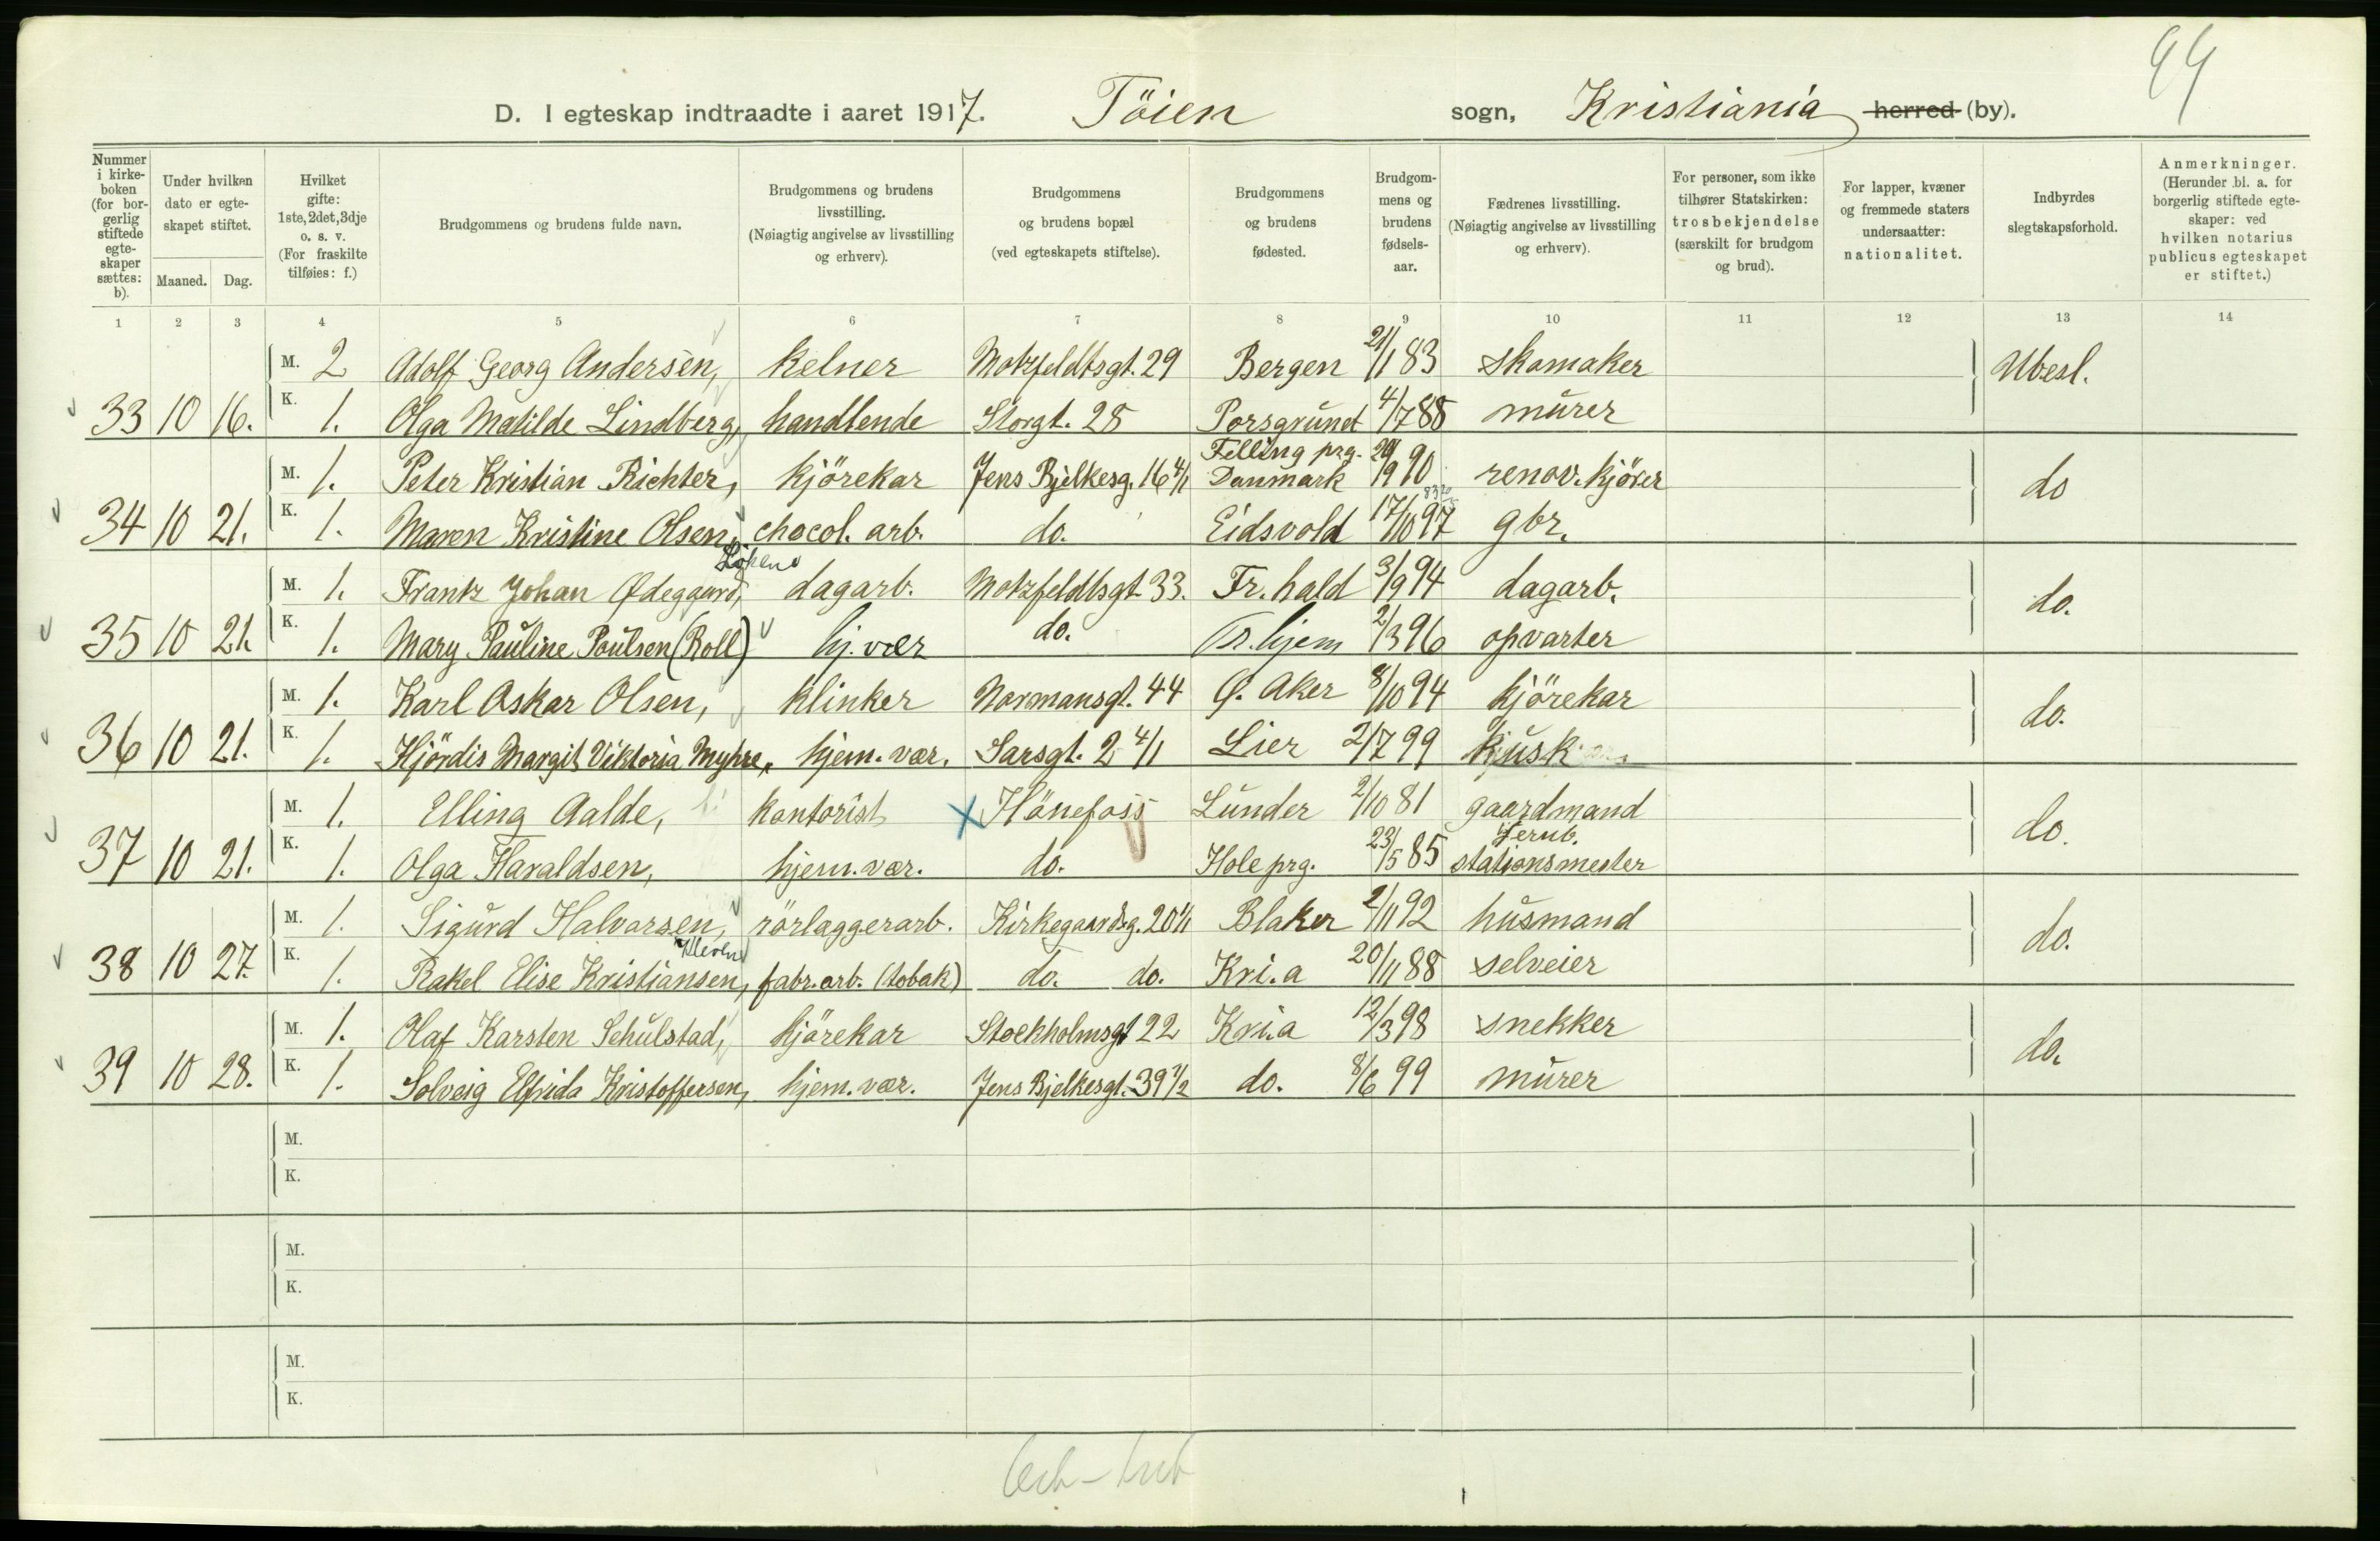 99
D. I egteskap indtraadte i aaret 1917. Töien sogn, Kristiania herred (by).
Nummer i kirkeboken (for borgerlig stiftede egteskaper sættes: b). Under hvilken dato er egteskapet stiftet. Maaned. Dag. Hvilket gifte: 1ste, 2det, 3dje o. s. v. (For fraskilte tilføies: f.) Brudgommens og brudens fulde navn. Brudgommens og brudens livsstilling. (Nøiagtig angivelse av livsstilling og erhverv). Brudgommens og brudens bopæl (ved egteskapets stiftelse). Brudgommens og brudens fødested. Brudgommens og brudens fødselsaar. Fædrenes livsstilling. (Nøiagtig angivelse av livsstilling og erhverv). For personer, som ikke tilhører Statskirken: trosbekjendelse (særskilt for brudgom og brud). For lapper, kvæner og fremmede staters undersaatter: nationalitet. Indbyrdes slegtskapsforhold. Anmerkninger. (Herunder bl. a. for borgerlig stiftede egteskaper: ved hvilken notarius publicus egteskapet er stiftet.)
1 2 3 4 5 6 7 8 9 10 11 12 13 14
M. 2 Adolf Georg Andersen, kelner Motzfeldtsgt. 29 Bergen 21/1 83 skomaker Ubesl.
33 10 16. K. 1. Olga Matilde Lindberg, handlende Storgt. 28 Porsgrund 4/7 88 murer
M. 1. Peter Kristian Richter, kjörekar Jens Bjelkesg. 16 4/1 Felling prg. Danmark 29/9 90 renov. kjörer do
34 10 21. K. 1. Maren Kristine Olsen, chocol. arb. do. Eidsvold 17/10 97 gbr.
Löken
M. 1. Frantz Johan Ødegaard, dagarb. Motzfeldtsgt. 33. Fr. hald 3/9 94 dagarb. do.
35 10 21. K. 1. Mary Pauline Poulsen (Roll) hj. vær do. Tr. hjem 2/3 96 opvarter
M. 1. Karl Oskar Olsen, klinker Normansgt. 44 Ø. Aker 8/10 94 kjörekar do.
36 10 21. K. 1. Hjördis Margit Viktoria Myhre, hjem. vær. Sarsgt. 2 4/1 Lier 2/7 99 kusk
M. 1. Elling Aalde, kontorist × Hönefoss Lunder 2/10 81 gaardmand do.
37 10 21. K. 1. Olga Haraldsen, hjem. vær. do. Hole prg. 23/5 85 Jernb. stationsmester
M. 1. Sigurd Halvorsen, rörlaggerarb. Kirkegaardsg. 20 1/1 Blaker 2/11 92 husmand do.
38 10 27. K. 1. Rakel Elise Kristiansen, fabr. arb. (tobak) do. do. Kri.a 20/11 88 selveier
M. 1. Olaf Karsten Schulstad, kjörekar Stockholmsgt 22 Kri.a 12/3 98 snekker do.
39 10 28. K. 1. Solveig Elfrida Kristoffersen, hjem. vær. Jens Bjelkesgt. 39 1/2 do. 8/6 99 murer
M.
K.
M.
K.
M.
K.